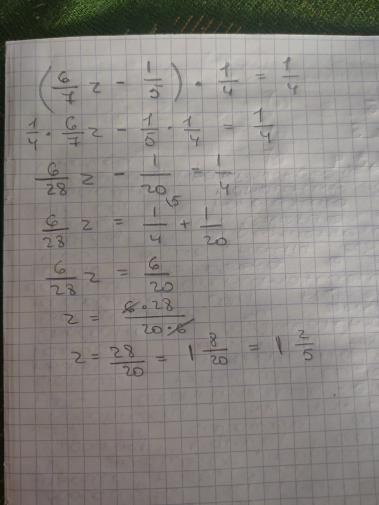 (6/7 z - 1/5) · 1/4 = 1/4
1/4 · 6/7 z - 1/5 · 1/4 = 1/4
6/28 z - 1/20 = 1/4
6/28 z = 1/4 ⁵ + 1/20
6/28 z = 6/20
z = 6·28 / 20·6
z = 28/20 = 1 8/20 = 1 2/5